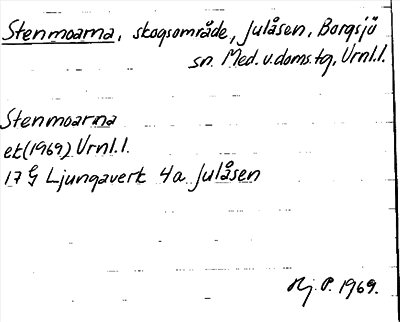 Stenmoarna, skogsområde, Julåsen, Borgsjö
sn. Med. v. doms. tg, Vrnl.l.
Stenmoarna
et (1969) Vrnl.l.
17 G Ljungaverk 4a Julåsen
Hj. P. 1969.